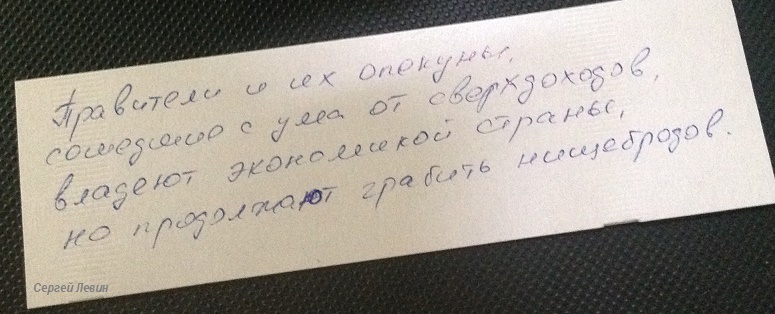 Правители и их опекуны,
сошедшие с ума от сверхдоходов,
владеют экономикой страны,
но продолжают грабить нищебродов.
Сергей Левин